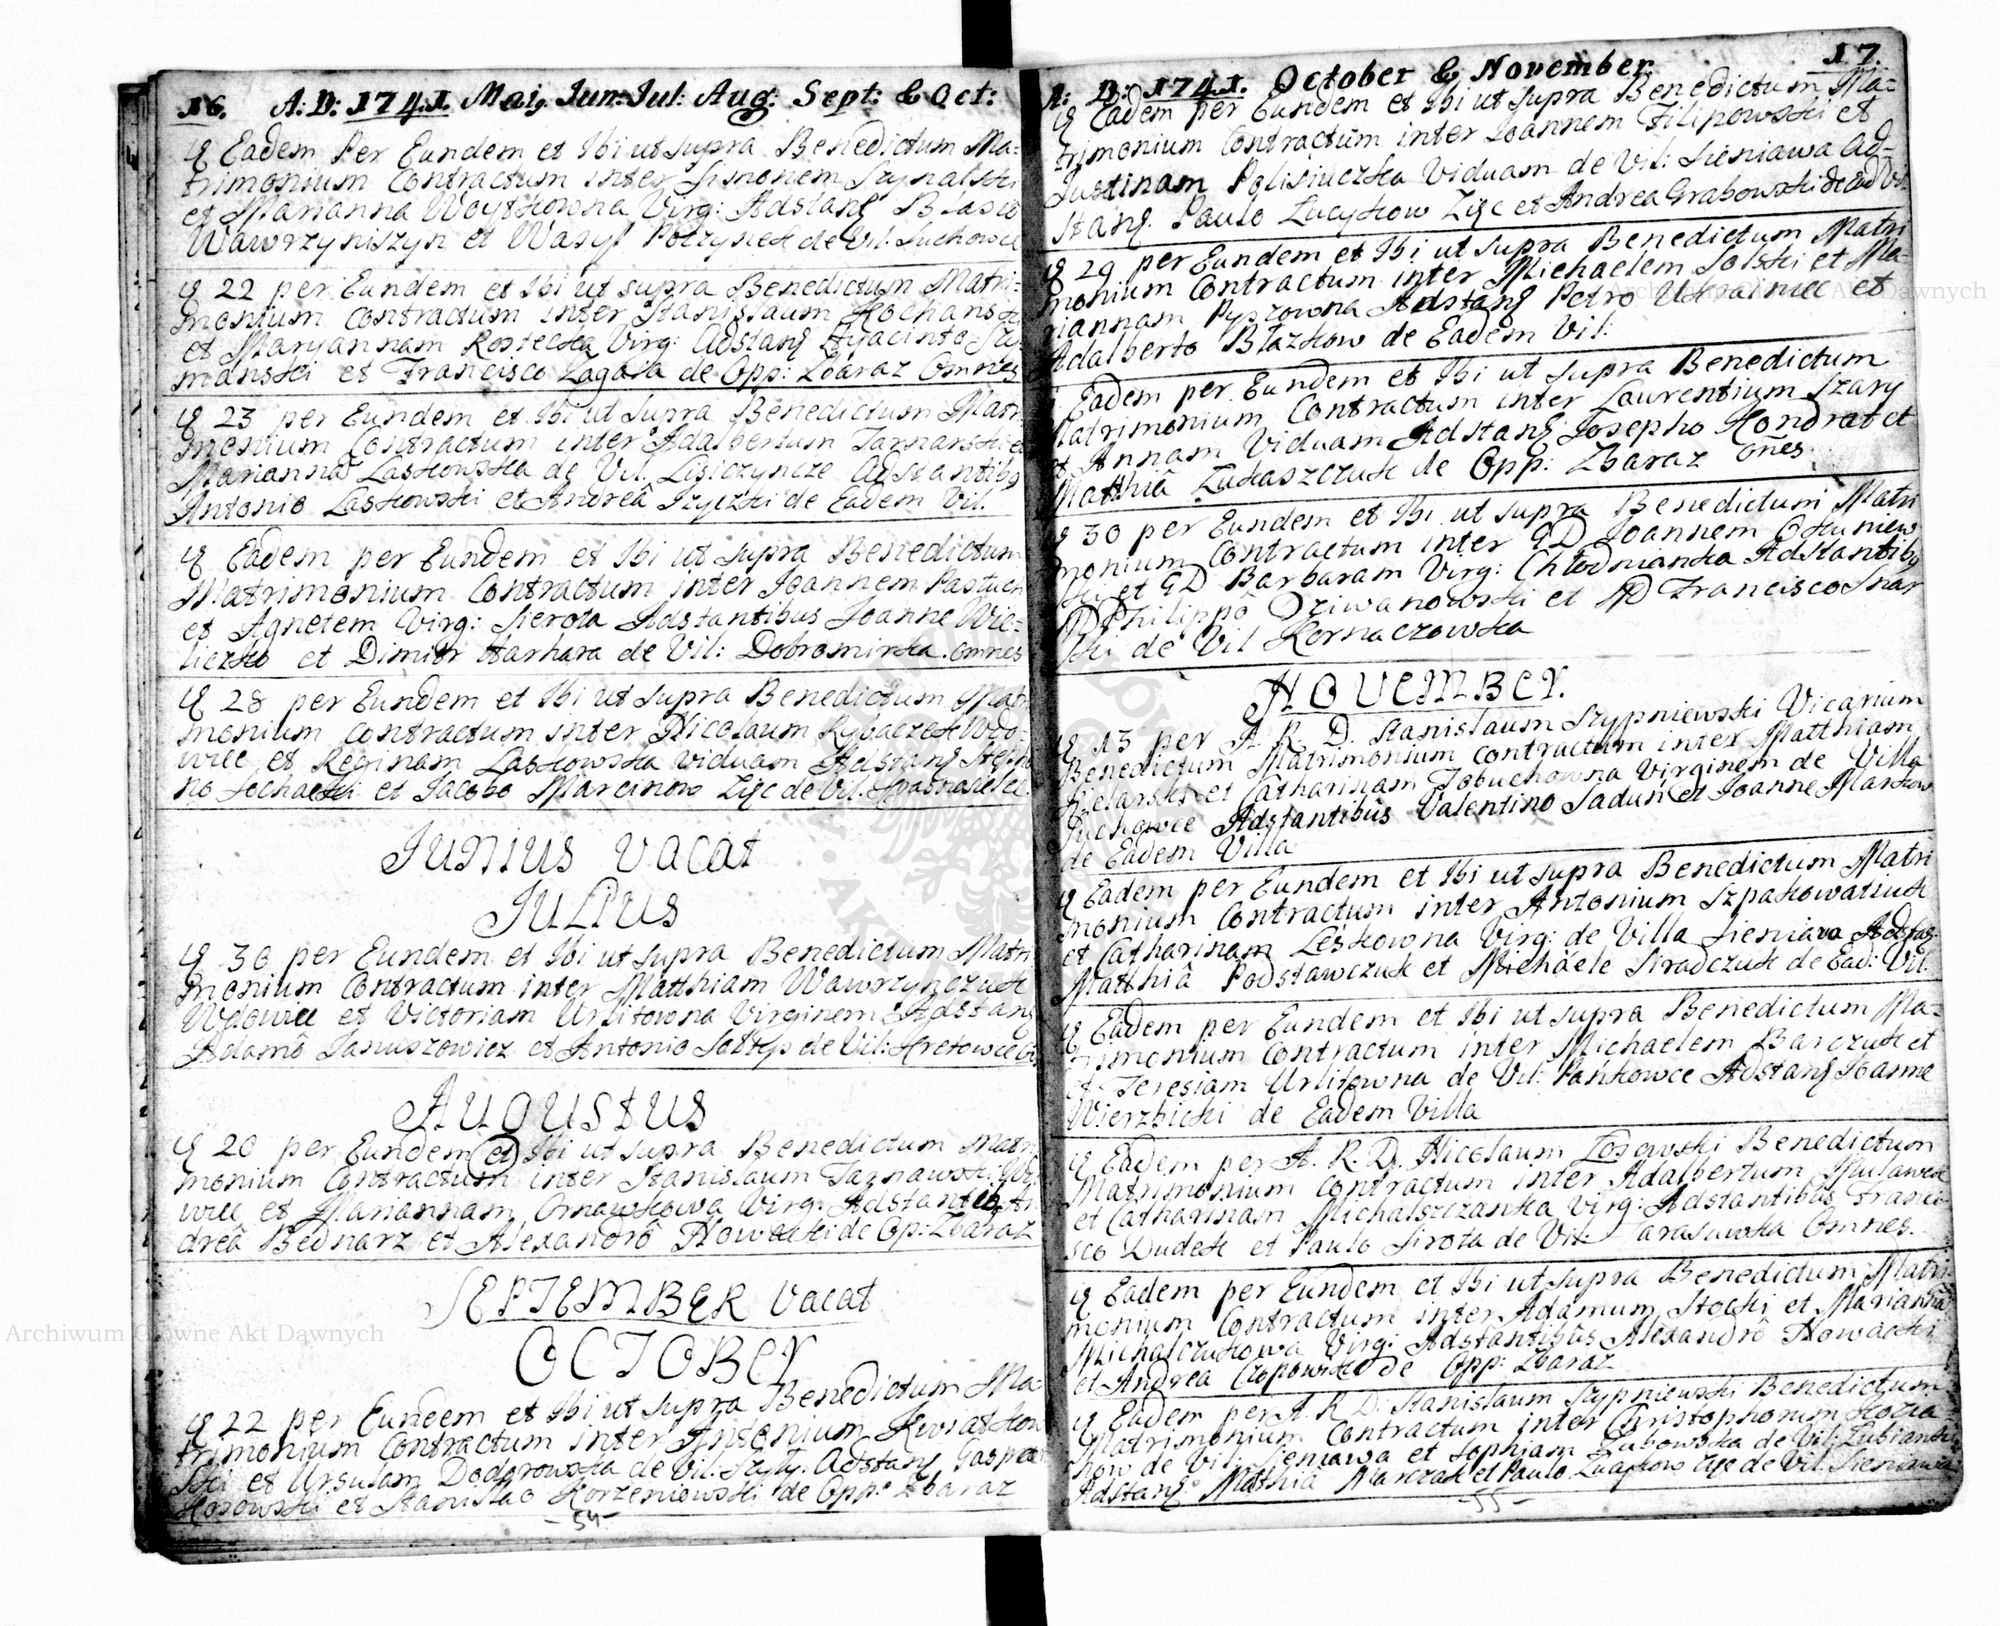 16. A: D: 1741. Maij, Jun: Jul: Aug: Sept: & Oct:
Eadem Per Eundem et Ibi ut supra Benedictum Ma-
trimonium Contractum inter Simonem
et Marianna Woytkowna Virg: Adstanq Blasio
Wawrzyniszyn et Wasyl Potrzysek de Vil: Suchowce
22 per Eundem et Ibi ut supra Benedictum Matri-
monium Contractum inter Stanislaum Kochanski
et Maryannam Rostecka Virg: Adstanq Hyacintho Szy
manski et Francisco Zagata de Opp: Zbaraz Omnes
23 per Eundem et Ibi ut Supra Benedictum Matri
monium Contractum inter Adalbertum Tarnarski et
Marianna Laskowska de Vil. Lisiczynce Adstantibq
Antonio Laskowski et Andreâ Izyczki de Eadem Vil.
Eadem per Eundem et Ibi ut supra Benedictum
Matrimonium Contractum inter Joannem Pastuch
et Agnetem Virg: Sierota Adstantibus Joanne Wie-
liczko et Dimitr Harhara de Vil: Dobrominka. omnes
28 per Eundem et Ibi ut supra Benedictum Mat
monium contractum inter Nicolaum Rybaczek Wdo-
wiec et Reginam Laskowska viduam Adstanq Stepha
no Sochacki et Jacobo Marcinow Zięc de Vil.
Junius vacat
Julius
30 per Eundem et Ibi ut supra Benedictum Matri
monium Contractum inter Matthiam Wawrzynczuk
Wdowiec et Victoriam Urlitowna Virginem Adstanq
Adamô Januszowicz et Antonio Soltys de Vil: Hretowce
Augustus
20 per Eundem et Ibi ut supra Benedictum Matri
monium Contractum inter Stanislaum Tarnawski
wiec et Mariannam Ornawkowa Virg: Adstantib, An
dreâ Bednarz et Alexandrô Nowacki de Op: Zbaraz
September vacat
October
22 per Eundem et Ibi ut supra Benedictum Ma
trimonium Contractum inter Antonium Kwiatkow
ski et Ursulam Dodorowska de Vil: Szyły. Adstanq Gaspar
Kosowski et Stanislao Korzeniowski de Opp: Zbaraz
-54-
A: D: 1741. October & November. 17.
Eadem per Eundem et Ibi ut supra Benedictum Ma-
trimonium Contractum inter Joannem Filipowski et
Justinam Polisiuczka Viduam de Vil: Sieniawa Ad-
stanq. Paulo Lucykow Zięc et Andrea Grabowski de Ead Vil
29 per Eundem et Ibi ut supra Benedictum Matri
monium Contractum inter Michaelem Solski et Ma-
riannam Pyszowna Adstanq Petro Ukrainiec et
Adalberto Blazkow de Eadem Vil:
Eadem per Eundem et Ibi ut supra Benedictum
Matrimonium Contractum inter Laurentium Szary
et Annam Viduam Adstanq Josepho Kondrat et
Matthiâ Łukaszczuk de Opp: Zbaraz Oñes.
30 per Eundem et Ibi ut supra Benedictum Matri
monium Contractum inter GD Joannem Okuniew
ski et GD Barbaram Virg: Chłodnianka Adstantibq
Philippô Dziwanowski et Francisco Snar
ski de Vil Kornaczowka
November.
13 per A. R. D. Stanislaum Szypniewski Vicarium
Benedictum Matrimonium contractum inter Matthiam
Bielarski et Catharinam Tobuchowna Virginem de Villa
Suchowce Adstantibus Valentino Sadun et Joanne Markow
de Eadem Villa
Eadem per Eundem et Ibi ut supra Benedictum Matri
monium Contractum inter Antonium Szpakowatiuk
et Catharinam Leskowna Virg: de Villa Sieniawa Adstaq
Matthiâ Podstawczuk et Michaele Siradczuk de Ead: Vil.
Eadem per Eundem et Ibi ut supra Benedictum Ma-
trimonium Contractum inter Michaelem Barczuk et
et Teresiam Urlitowna de Vil: Pańkowce Adstanq Joanne
Wierzbicki de Eadem Villa
Eadem per A. R. D. Nicolaum Losowski Benedictum
Matrimonium Contractum inter Adalbertum Mulawek
et Catharinam Michalszczanka Virg: Adstantibus Franci-
sco Dudek et Paulo Sirota de Vil: Tarasowka Omnes.
Eadem per Eundem et Ibi ut supra Benedictum Matri-
monium Contractum inter Adamum Stocki et Mariannâ
Michalczukowa Virg: Adstantibus Alexandrô Nowacki
et Andrea Czopowski de Opp: Zbaraz
Eadem per A. R. D. Stanislaum Szypniewski Benedictum
Matrimonium Contractum inter Christophorum Kozia
now de Vil: Sieniawa et Sophiam Zubowska de Vil: Lubianki
Adstanq Matthiâ Marczak et Paulo Lucykow Zięc de Vil: Sieniawa
-55-
Archiwum Główne Akt Dawnych